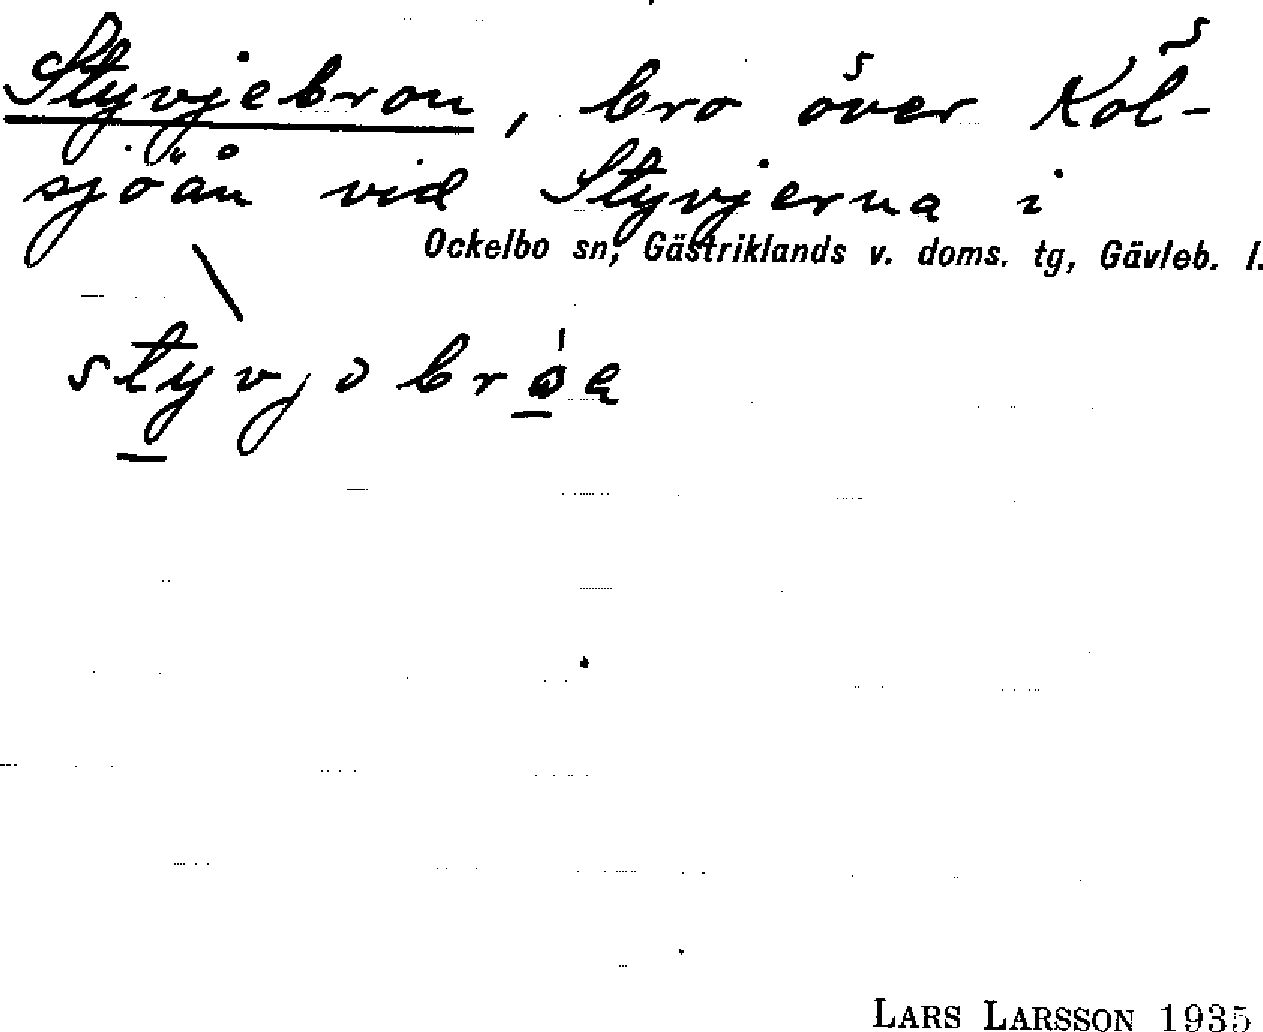 Styvjebron, bro över Köl-
sjöån vid Styvjerna i
Ockelbo sn, Gästriklands v. doms. tg, Gävleb. l.
LARS LARSSON 1935